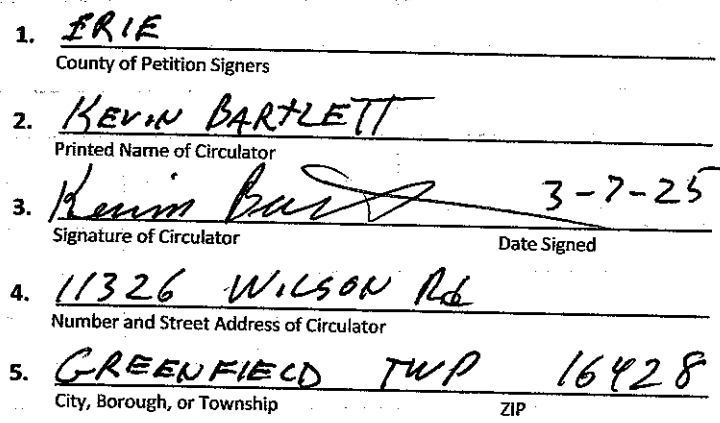 1. ERIE
County of Petition Signers
2. KEVIN BARTLETT
Printed Name of Circulator
3. Kevin Bart 3-7-25
Signature of Circulator Date Signed
4. 11326 WILSON Rd
Number and Street Address of Circulator
5. GREENFIELD TWP 16428
City, Borough, or Township ZIP